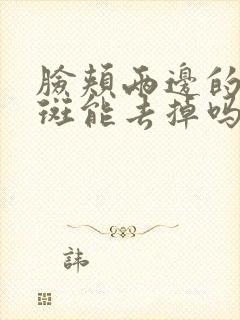 臉頰兩邊的
斑能去掉嗎
諱